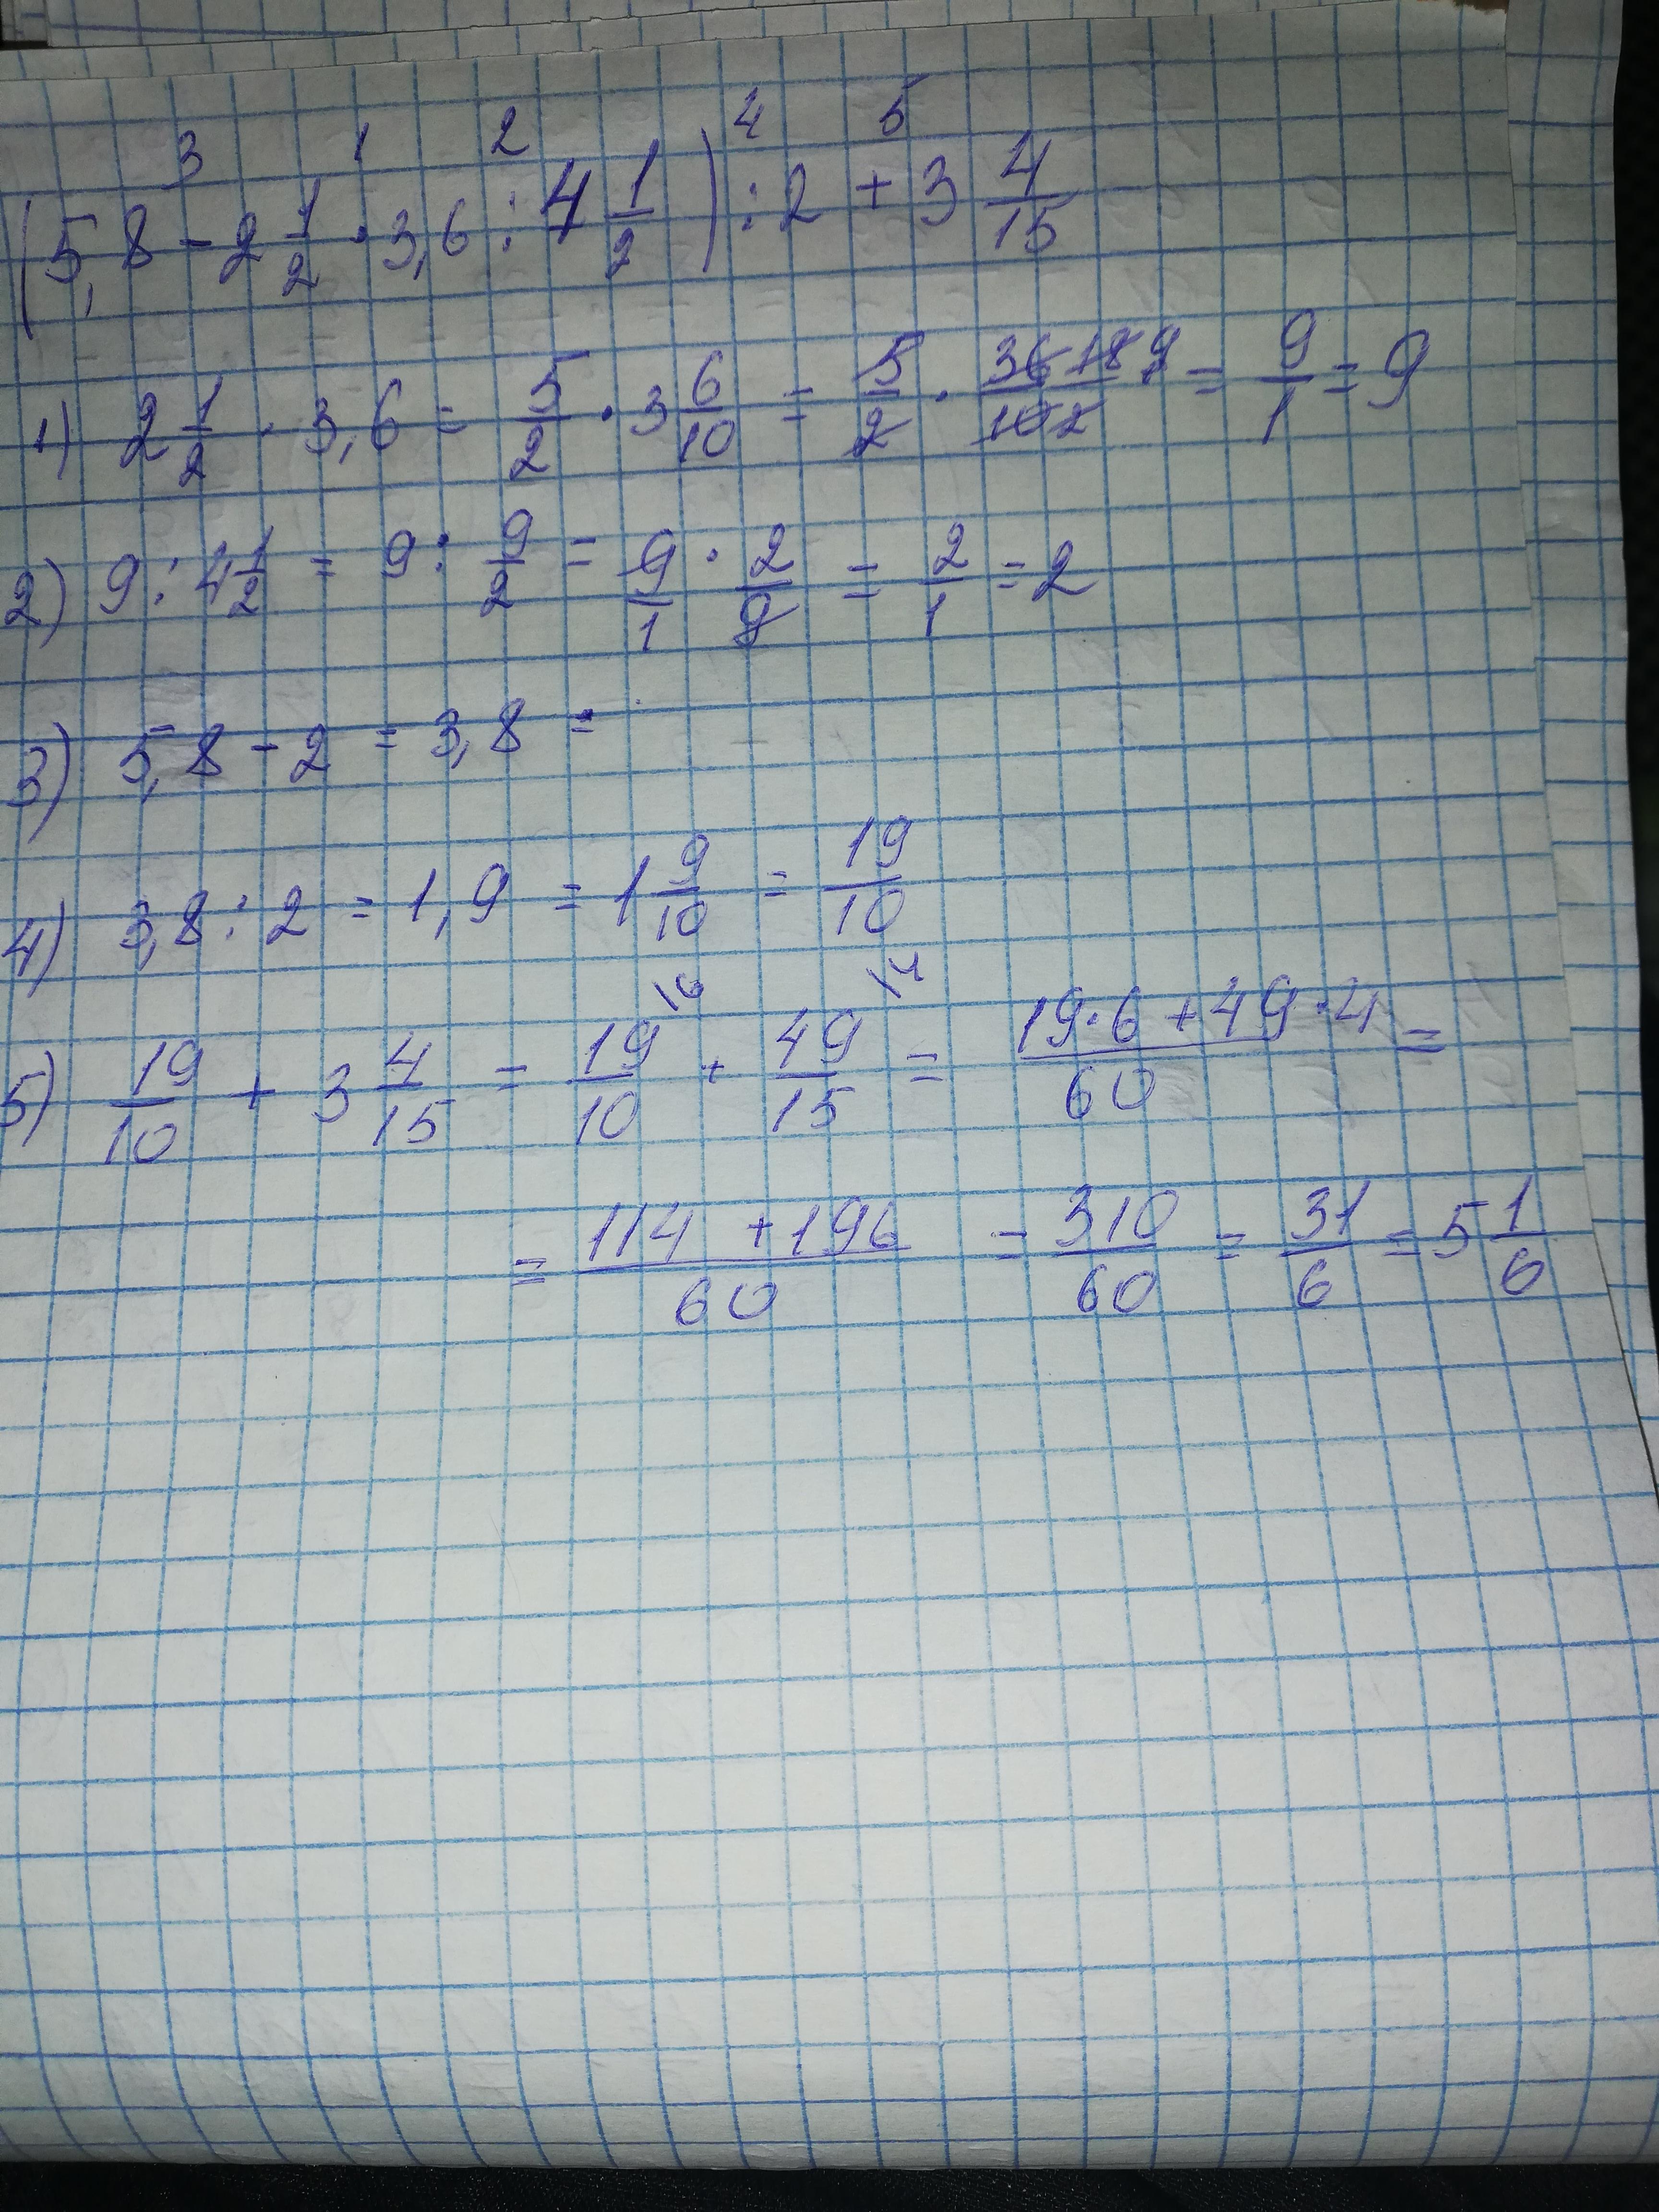 3 1 2 4 5
(5,8 - 2 1/2 · 3,6 : 4 1/2) : 2 + 3 4/15
1) 2 1/2 · 3,6 = 5/2 · 3 6/10 = 5/2 · 36 18 9/10 2 = 9/1 = 9
2) 9 : 4 1/2 = 9 : 9/2 = 9/1 · 2/9 = 2/1 = 2
3) 5,8 - 2 = 3,8 =
4) 3,8 : 2 = 1,9 = 1 9/10 = 19/10
5) 19/10 + 3 4/15 = 19/10 \6 + 49/15 \4 = 19·6 + 49·4/60 =
= 114 + 196/60 = 310/60 = 31/6 = 5 1/6